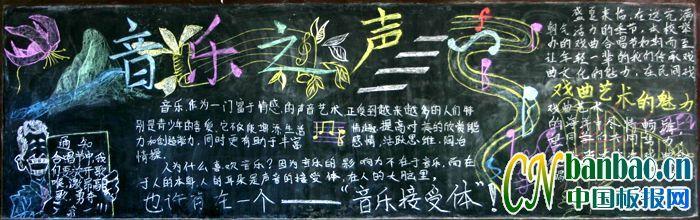 音乐之声
音乐作为一门富于情感的声音艺术,正受到越来越多的人们特
别是青少年的喜爱,它不仅能增添生活
情趣,提高对美的欣赏能
力和创造潜力,同时更有助于丰富
感情,活跃思维,陶冶
情操。
人为什么喜欢音乐?因为音乐的影响力不在于音乐,而在
于人的本身,人的耳朵是声音的接受体,在人的大脑里,
也许有在一个——"音乐接受体"!
通知
盛夏来临,在这充满
朝气活力的季节,我校举
办的戏曲合唱节如期而至
让年轻一辈的我们传承戏
曲文化的魅力,在民间
戏曲艺术的魅力
戏曲艺术
CNbanbao.cn
中国板报网